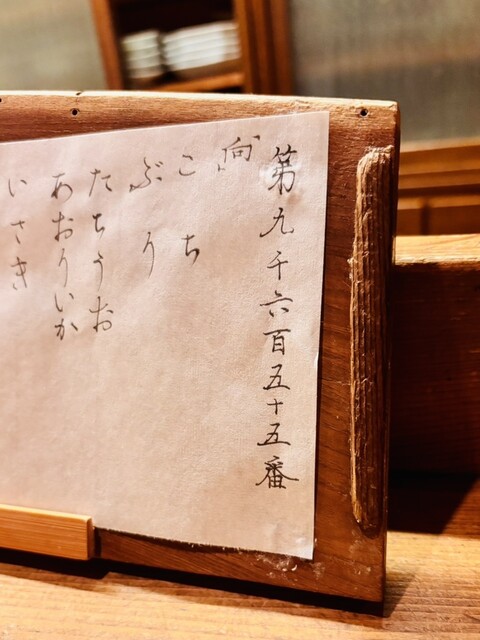 第九千六百五十五番
向
こち
ぶり
たちうお
あおりいか
いさき